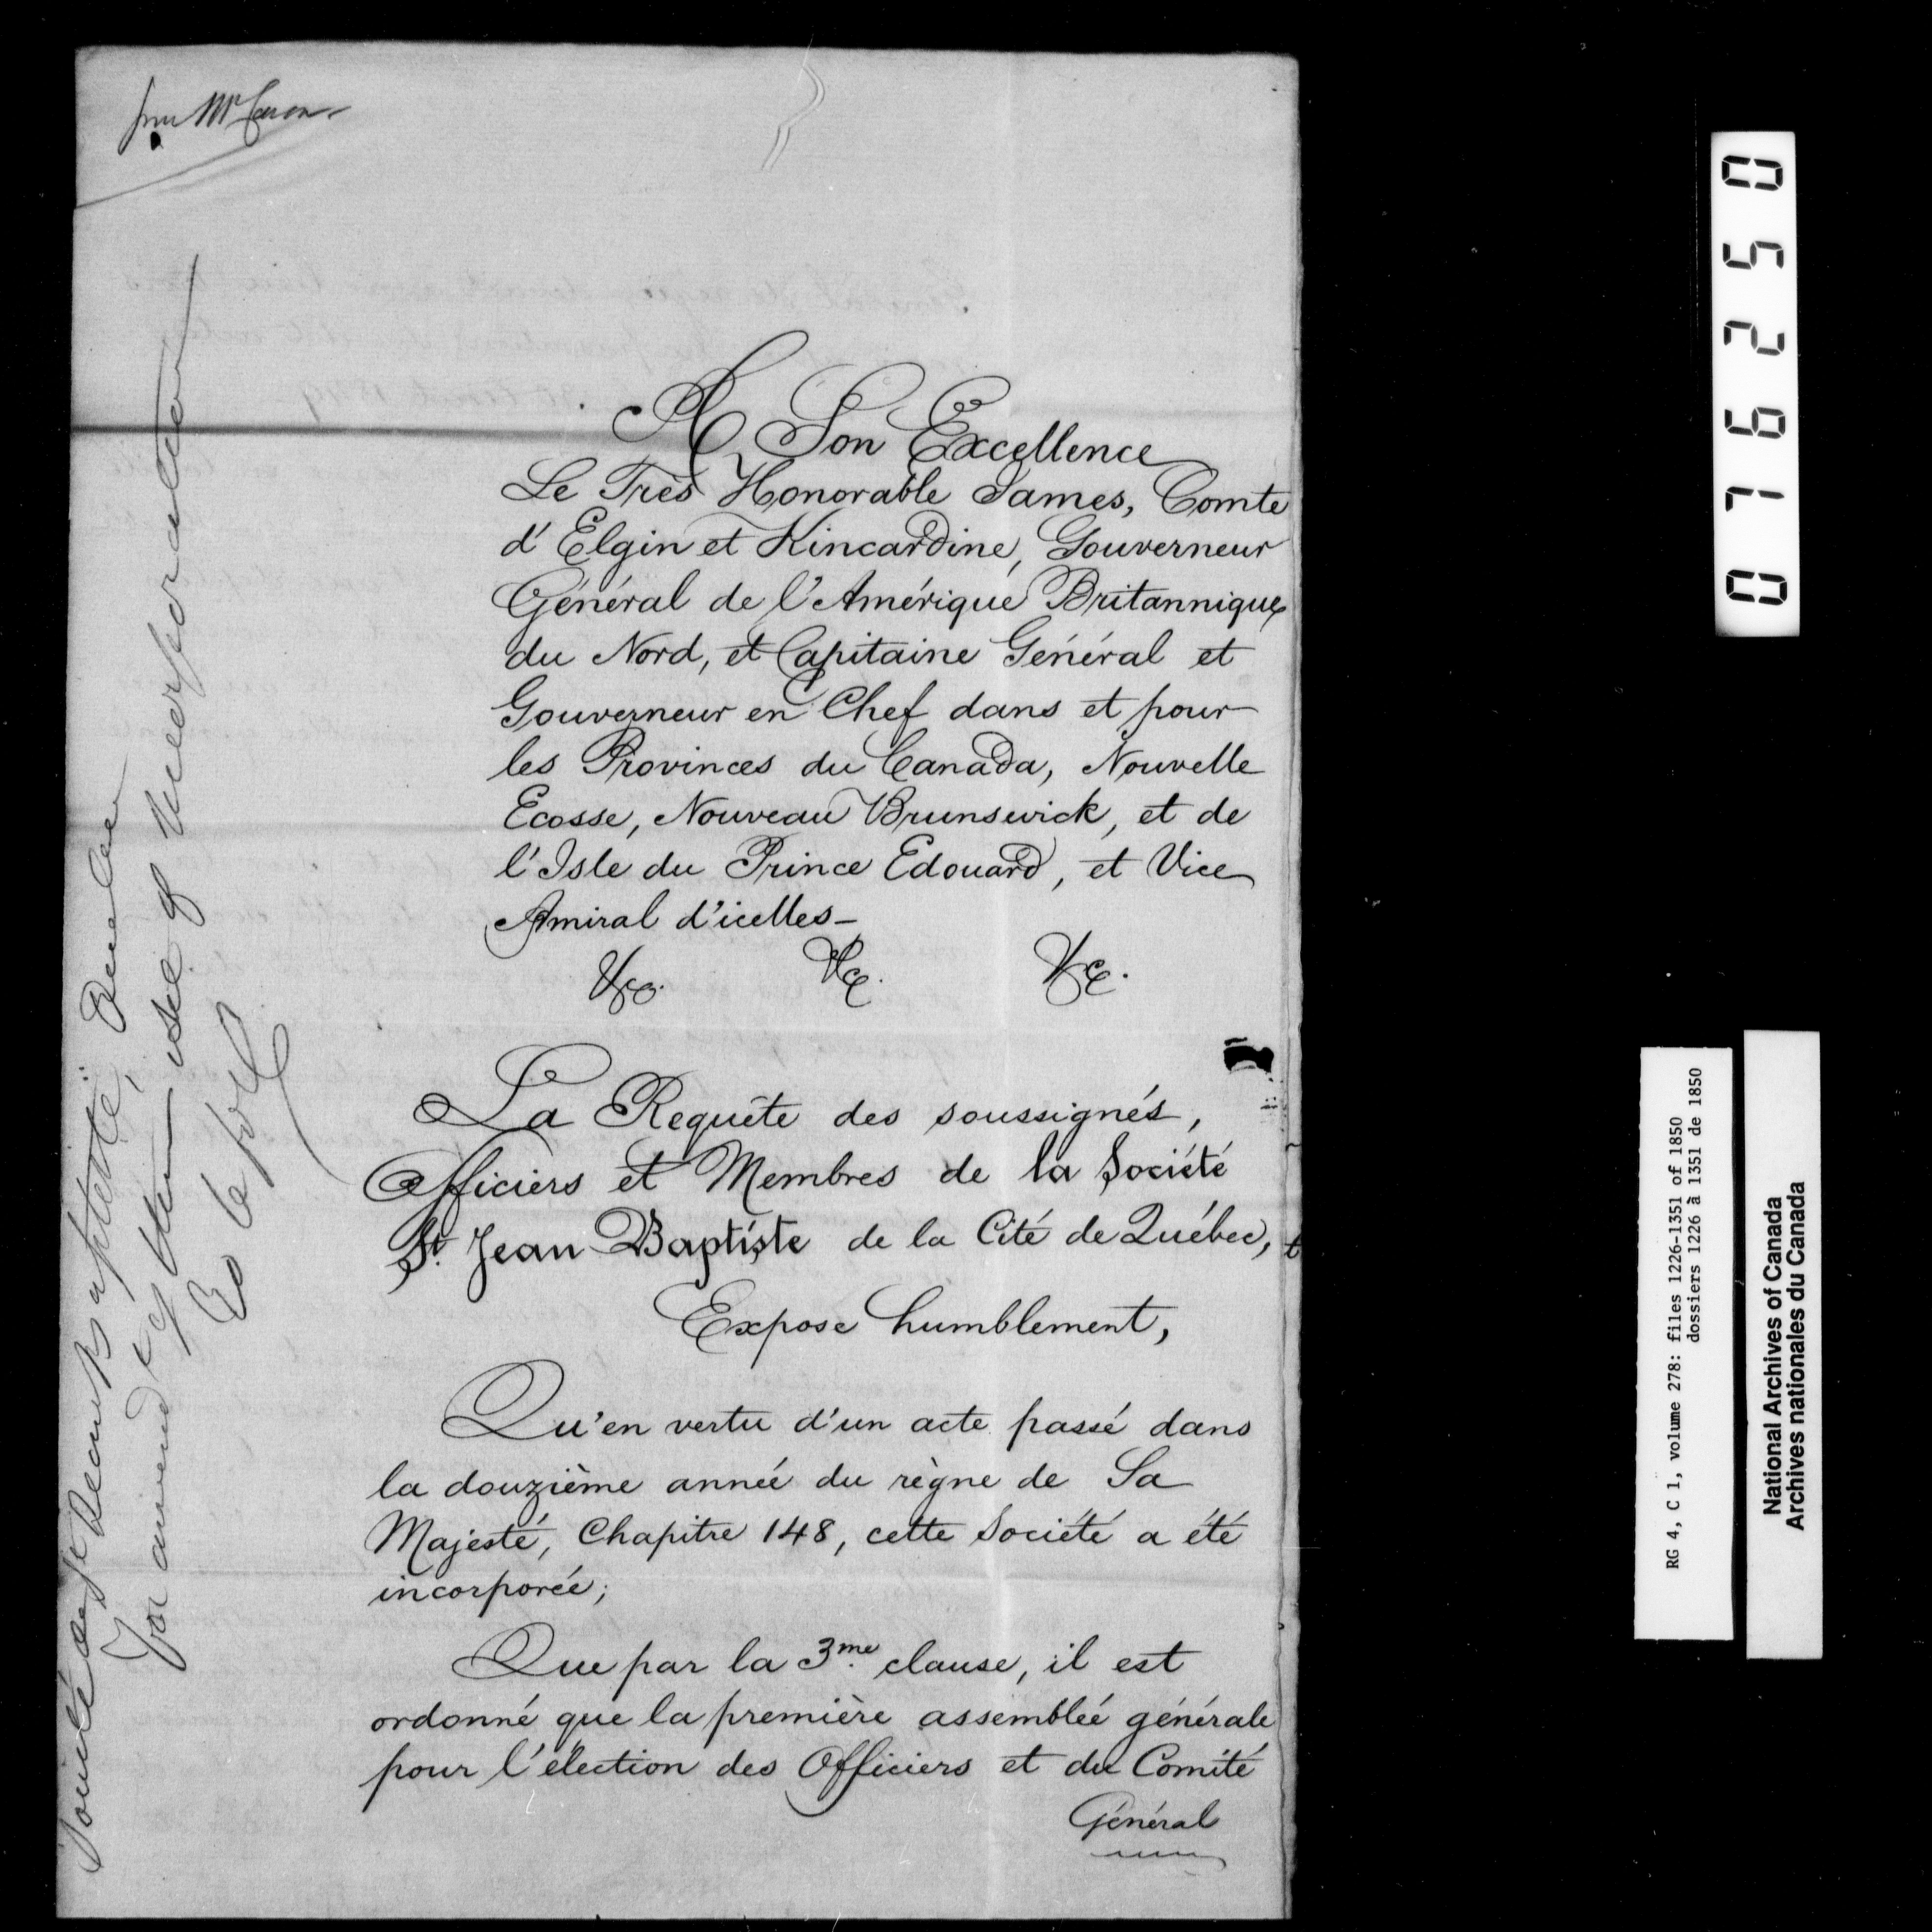 from Mr Caron
A Son Excellence
Le Très Honorable James, Comte
d'Elgin et Kincardine, Gouverneur
Général de l'Amérique Britannique
du Nord, et Capitaine Général et
Gouverneur en Chef dans et pour
les Provinces du Canada, Nouvelle
Ecosse, Nouveau Brunswick, et de
l'Isle du Prince Edouard, et Vice
Amiral d'icelles-
&c. &c. &c.
La Requête des soussignés,
Officiers et Membres de la Société
St. Jean Baptiste de la Cité de Québec,
Expose humblement,
Qu'en vertu d'un acte passé dans
la douzième année du règne de Sa
Majesté, Chapitre 148, cette Société a été
incorporée;
Que par la 3me. clause, il est
ordonné que la première assemblée générale
pour l'élection des Officiers et du Comité
Général
Société de St Jean Bapte
for amend of Incorporation
076250
RG 4, C 1, volume 278: files 1226-1351 of 1850
dossiers 1226 à 1351 de 1850
National Archives of Canada
Archives nationales du Canada